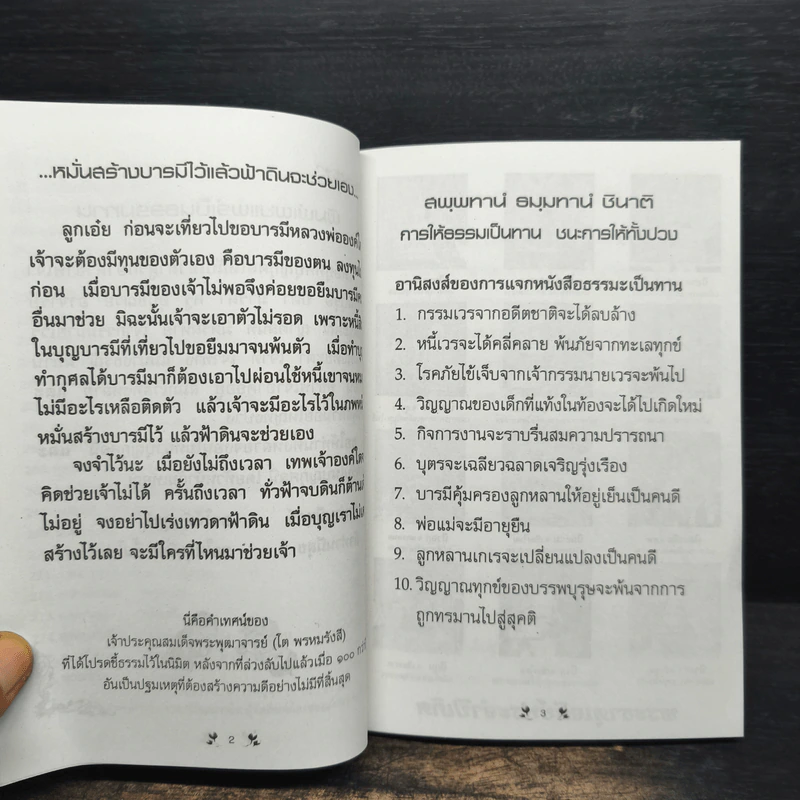 ...หมั่นสร้างบารมีไว้แล้วฟ้าดินจะช่วยเอง...
ลูกเอ๋ย ก่อนจะเที่ยวไปขอบารมีหลวงพ่อองค์ใ
เจ้าจะต้องมีทุนของตัวเอง คือบารมีของตน ลงทุนไ
ก่อน เมื่อบารมีของเจ้าไม่พอจึงค่อยขอยืมบารมีค
อื่นมาช่วย มิฉะนั้นเจ้าจะเอาตัวไม่รอด เพราะหนี้สิ
ในบุญบารมีที่เที่ยวไปขอยืมมาจนพ้นตัว เมื่อทำบุ
ทำกุศลได้บารมีมาก็ต้องเอาไปผ่อนใช้หนี้เขาจนหม
ไม่มีอะไรเหลือติดตัว แล้วเจ้าจะมีอะไรไว้ในภพห
หมั่นสร้างบารมีไว้ แล้วฟ้าดินจะช่วยเอง
จงจำไว้นะ เมื่อยังไม่ถึงเวลา เทพเจ้าองค์ใด
คิดช่วยเจ้าไม่ได้ ครั้นถึงเวลา ทั่วฟ้าจบดินก็ต้าน
ไม่อยู่ จงอย่าไปเร่งเทวดาฟ้าดิน เมื่อบุญเราไม่เ
สร้างไว้เลย จะมีใครที่ไหนมาช่วยเจ้า
นี่คือคำเทศน์ของ
เจ้าประคุณสมเด็จพระพุฒาจารย์ (โต พรหมรังสี)
ที่ได้โปรดชี้ธรรมไว้ในนิมิต หลังจากที่ล่วงลับไปแล้วเมื่อ ๑๐๐
อันเป็นปฐมเหตุที่ต้องสร้างความดีอย่างไม่มีที่สิ้นสุด
2
สพฺพทานํ ธมฺมทานํ ชินาติ
การให้ธรรมเป็นทาน ชนะการให้ทั้งปวง
อานิสงส์ของการแจกหนังสือธรรมะเป็นทาน
1. กรรมเวรจากอดีตชาติจะได้ลบล้าง
2. หนี้เวรจะได้คลี่คลาย พ้นภัยจากทะเลทุกข์
3. โรคภัยไข้เจ็บจากเจ้ากรรมนายเวรจะพ้นไป
4. วิญญาณของเด็กที่แท้งในท้องจะได้ไปเกิดใหม่
5. กิจการงานจะราบรื่นสมความปรารถนา
6. บุตรจะเฉลียวฉลาดเจริญรุ่งเรือง
7. บารมีคุ้มครองลูกหลานให้อยู่เย็นเป็นคนดี
8. พ่อแม่จะมีอายุยืน
9. ลูกหลานเกเรจะเปลี่ยนแปลงเป็นคนดี
10. วิญญาณทุกข์ของบรรพบุรุษจะพ้นจากการ
ถูกทรมานไปสู่สุคติ
3